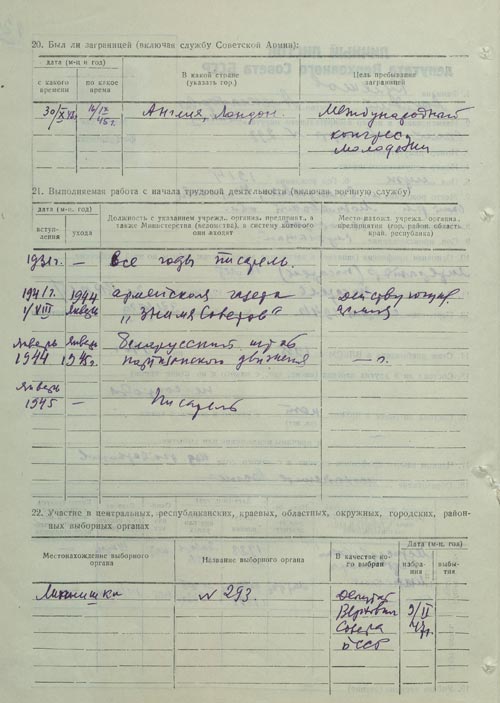 20. Был ли заграницей (включая службу Советской Армии):
дата (м-ц и год)
с какого времени
по какое время
В какой стране (указать гор.)
Цель пребывания заграницей
30/X 45г.
Англия, Лондон.
Международный
конгресс
молодежи
21. Выполняемая работа с начала трудовой деятельности (включая военную службу)
дата (м-ц, год)
вступления
ухода
Должность с указанием учрежд., организ., предприят., а также Министерства (ведомства), в систему которого они входят
Местонахожд. учрежд., организ., предприятия (гор. район, область край, республика)
1931г. — Все годы писарель
1941г. 1944 армейская газета действующая
1/VIII январь „Знамя Советов" армия
Январь Январь Белорусский штаб
1944 1945г. партизанского движения — „.
Январь
1945 — Писарель
22. Участие в центральных, республиканских, краевых, областных, окружных, городских, районных выборных органах
Местонахождение выборного органа
Название выборного органа
В качестве кого выбран
Дата (м-ц, год)
избрания
выбытия
№ 293. Депутат
Верховн. 9/II
Совета 47г.
БССР